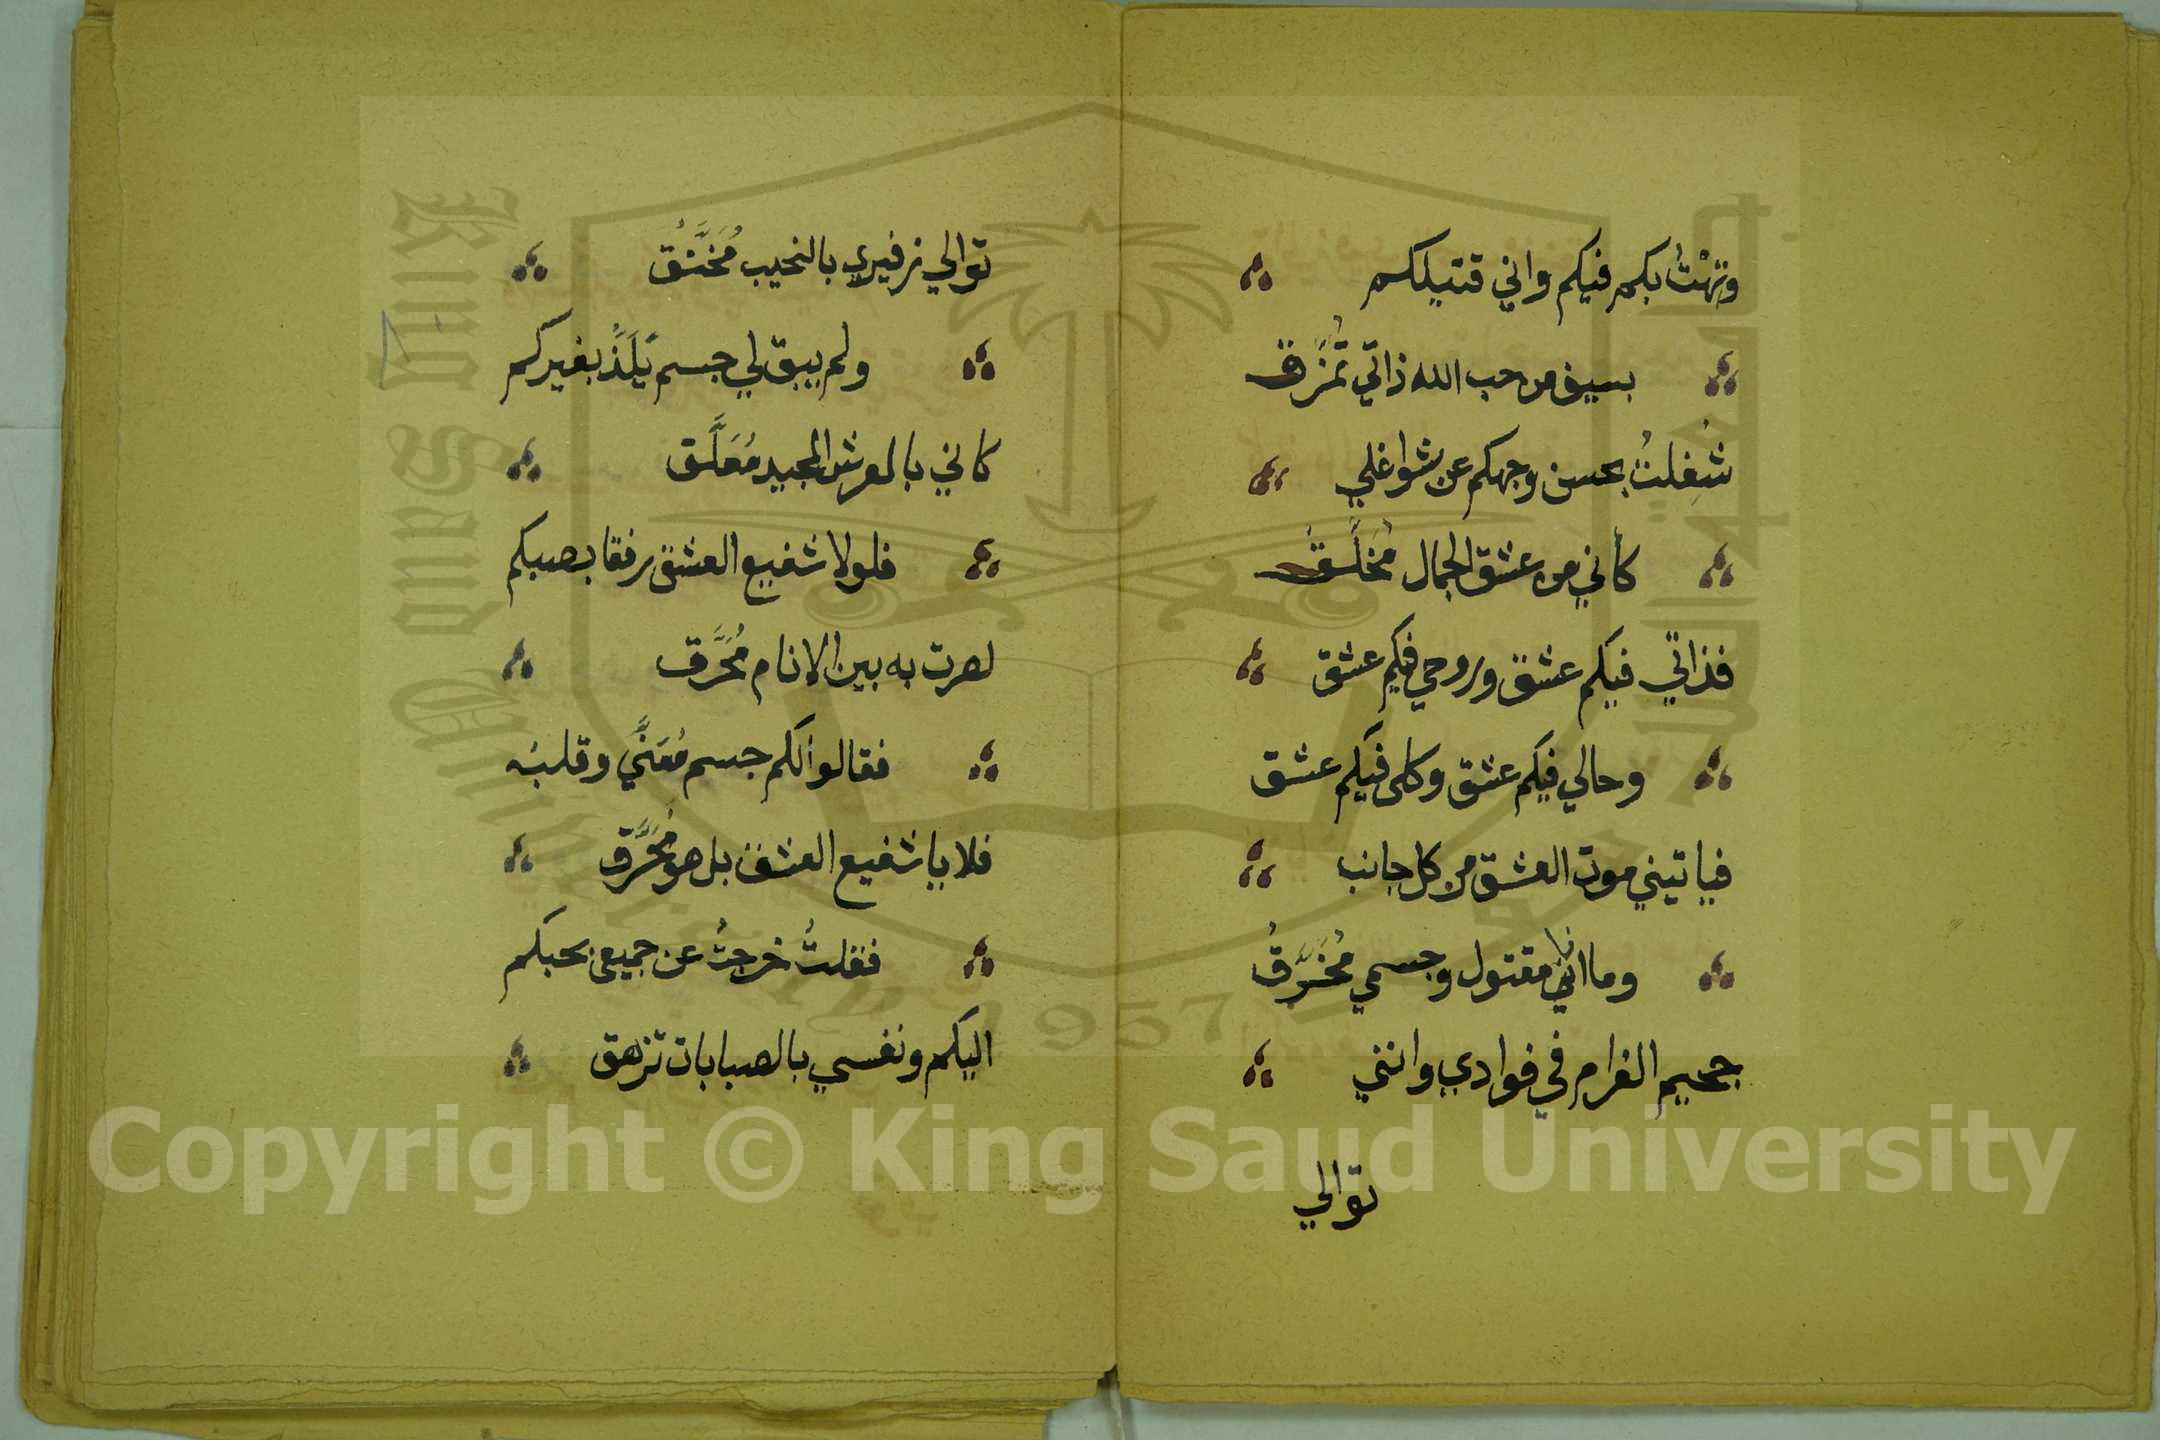 وتهتُ بكم فيكم واني قتيلكم
بسيف من حب الله ذاتي تُمَزَّق
شُغِلتُ بحسن وجهكم عن شواغلي
كأني من عشق الجمال مُخَلَّق
فذاتي فيكم عشق وروحي فيكم عشق
وحالي فيكم عشق وكلى فيكم عشق
فياتيني موت العشق من كل جانب
وما انا مقتول وجسمي مُخَرَّقُ
جحيم الغرام في فوادي وانني
توالي
توالي زفيري بالنحيب مُخَنَّقُ
ولم يبق لي جسم يَلَذُّ بغيركم
كاني بالعرش المجيد مُعَلَّق
فلولا شفيع العشق رفقا بصبكم
لصرت به بين الانام مُحَرَّق
فقالوا لكم جسم مُعَنَّي وقلبُه
فلا يا شفيع العشق بل هو مُحَرَّق
فقلتُ خرجتُ عن جميعي بحبكم
اليكم ونفسي بالصبابات تزهق
King Saud University
1957
Copyright © King Saud University